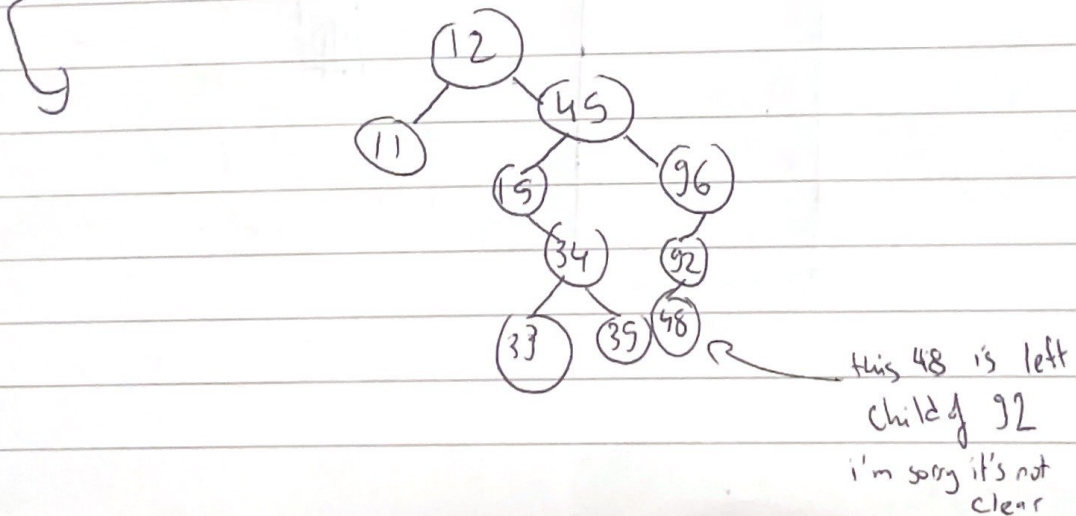 12
11 45
15 96
34 92
33 35 48
this 48 is left
child of 92
i'm sorry it's not
clear